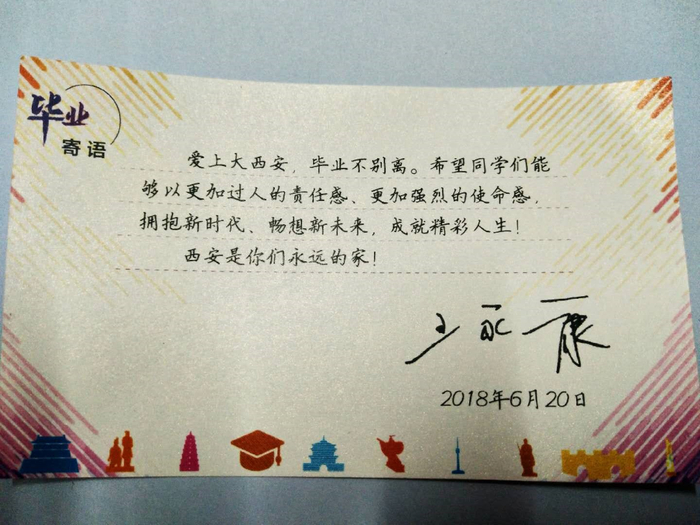 毕业
寄语
爱上大西安，毕业不别离。希望同学们能
够以更加过人的责任感、更加强烈的使命感，
拥抱新时代、畅想新未来，成就精彩人生！
西安是你们永远的家！
王永康
2018年6月20日